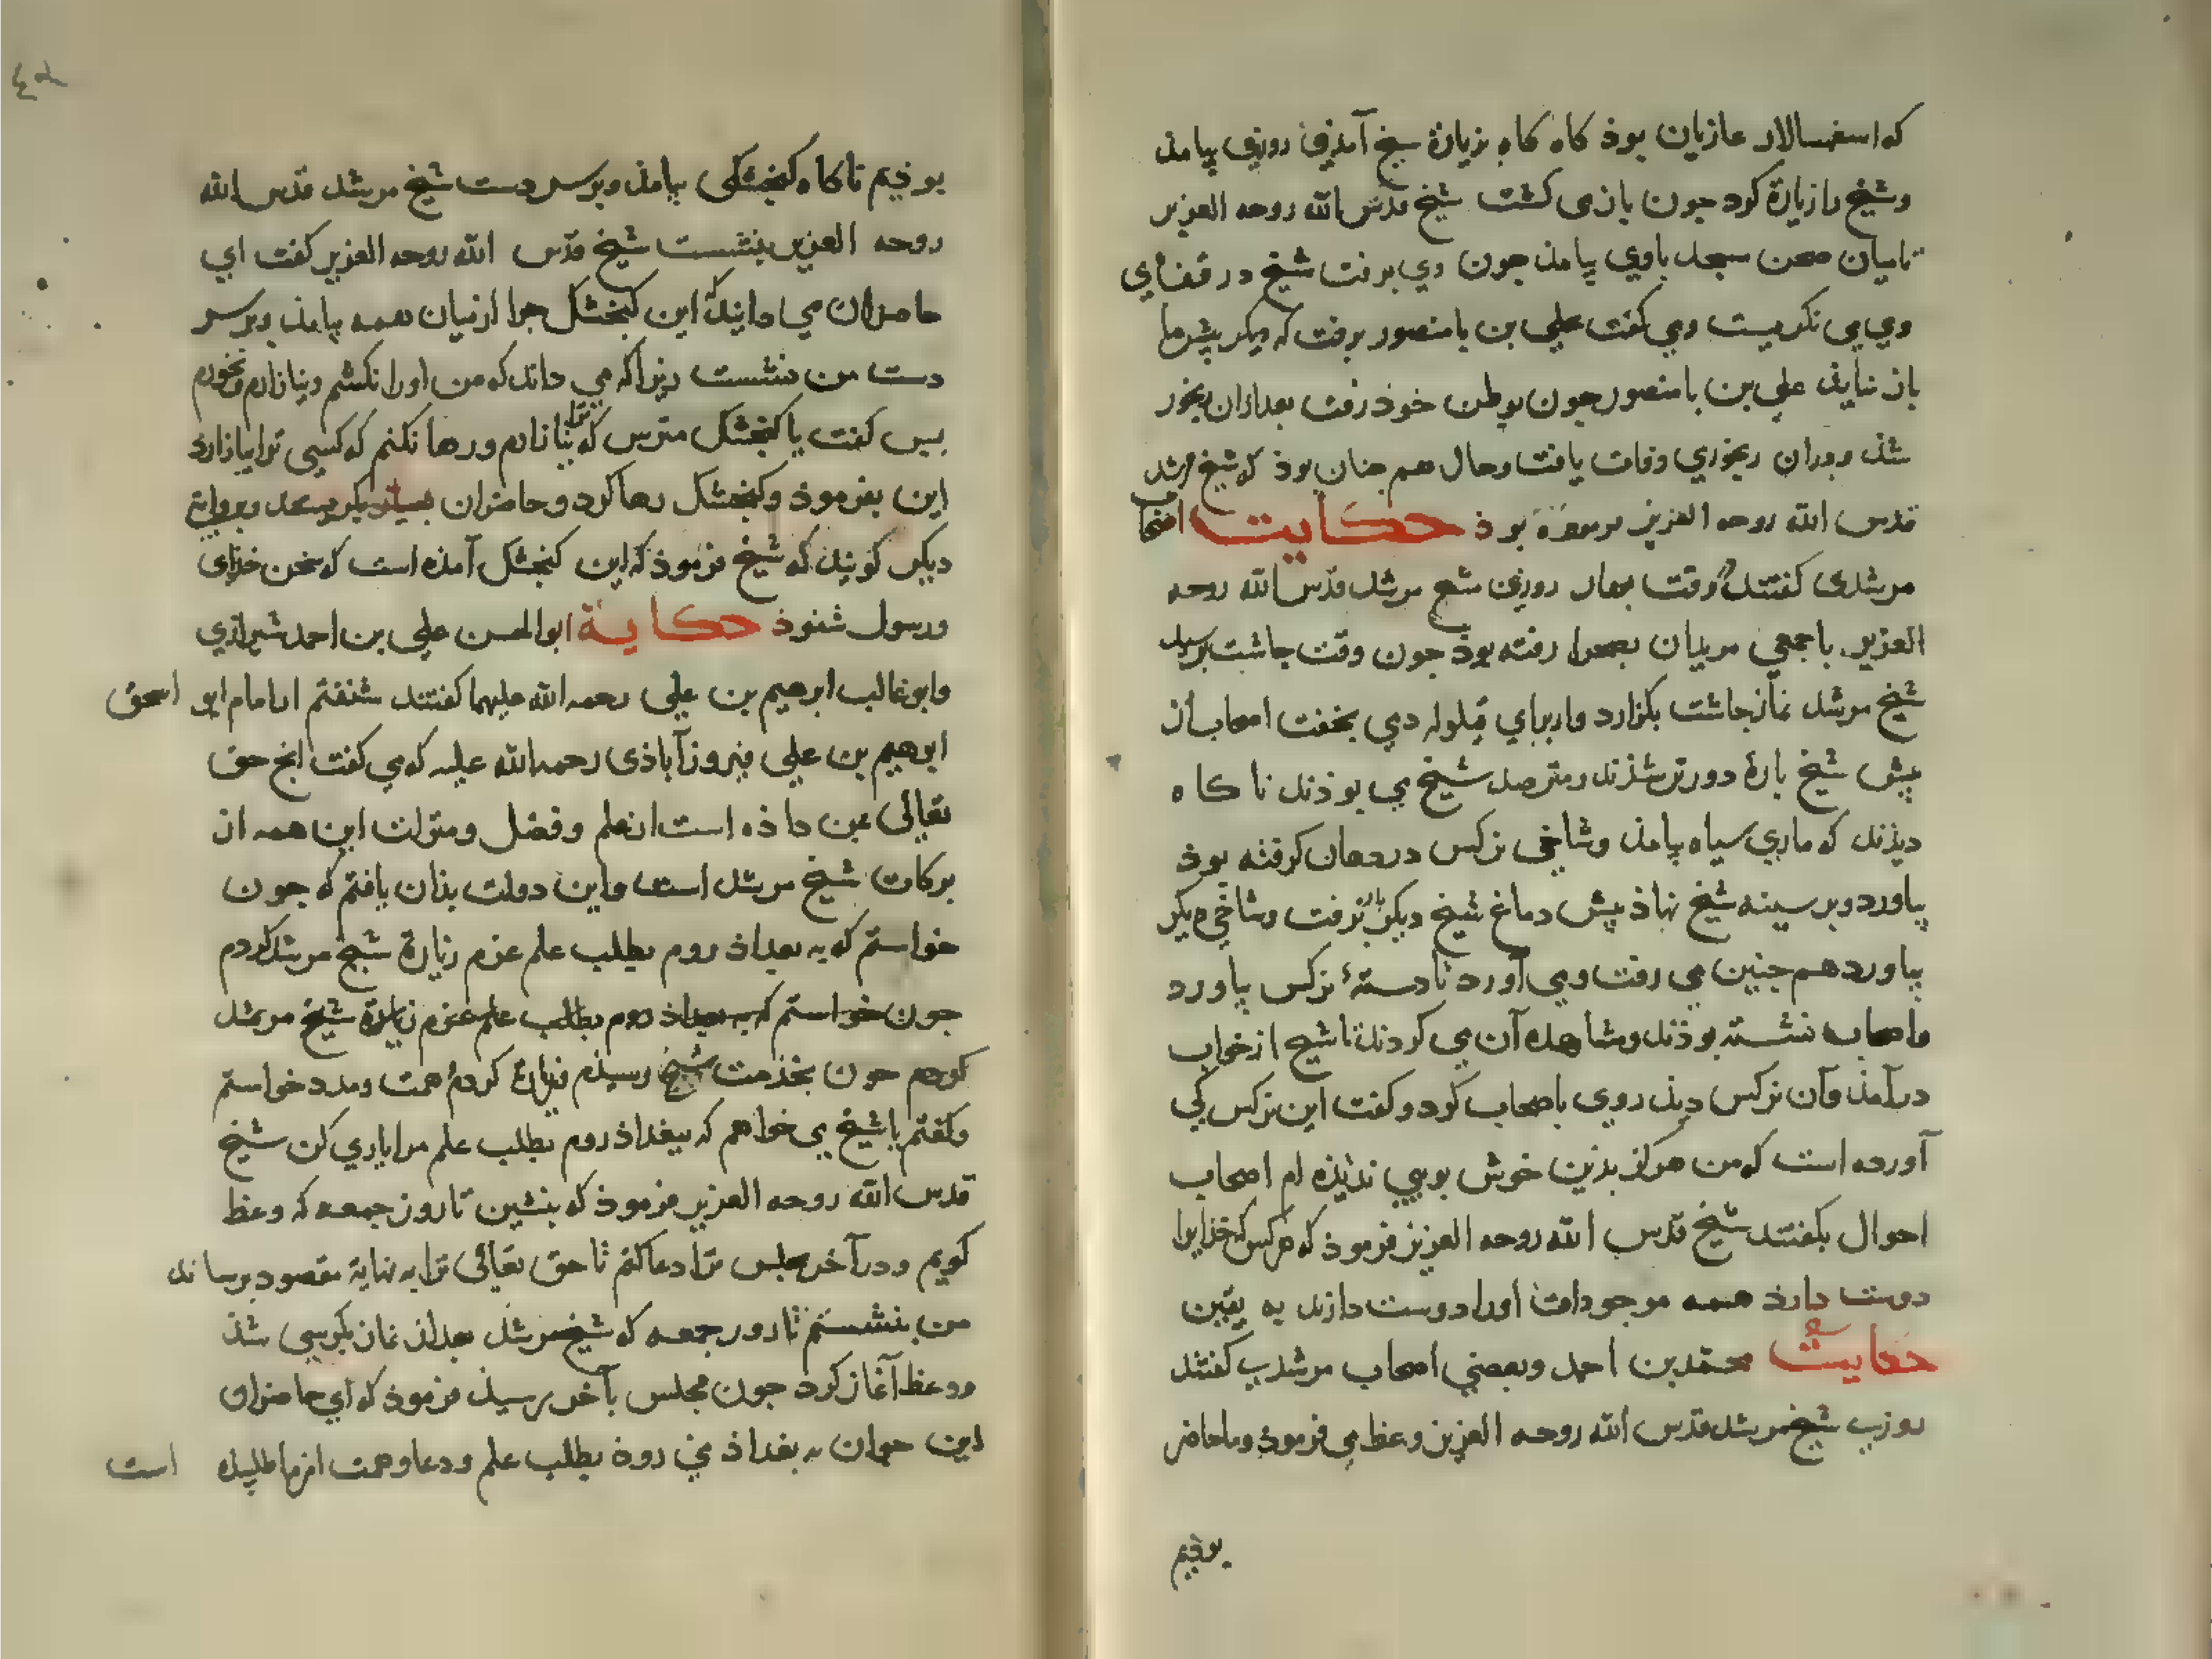 که اسفهسالار غازیان بوذ کاه کاه بزیارة شیخ آمذی روزی بیامذ
وشیخ را زیارة کرد جون بازی کشت شیخ قدس الله روحه العزیز
تا میان صحن مسجد باوی بیامذ جون وی برفت شیخ در قفای
وی می نکریست ومی کفت علی بن بامنصور برفت که دیکر بیش ما
باز نیایذ علی بن بامنصور جون بوطن خوذ رفت بعد ازان رنجور
شذ ودران رنجوری وفات یافت وحال هم جنان بوذ که شیخ مرشد
قدس الله روحه العزیز فرموذه بوذ حکایت اصحاب
مرشدی کفتند که وقت بهار روزی شیخ مرشد قدس الله روحه
العزیز باجمعی مریدان بصحرا رفته بوذ جون وقت جاشت برسید
شیخ مرشد نماز جاشت بکزارد واز برای قیلوله دمی بخفت اصحاب از
بیش شیخ بارۀ دورتر شذند ومترصد شیخ می بوذند ناکاه
دیذند که ماری سیاه بیامذ وشاخی نرکس دردهان کرفته بوذ
بیاورد وبر سینه شیخ نهاذ بیش دماغ شیخ دیکر بار برفت وشاخی دیکر
بیاورد هم جنین می رفت ومی آورد تا دستۀ نرکس بیاورد
واصحاب نشسته بوذند ومشاهده آن می کردند تا شیخ از خواب
درآمذ وآن نرکس دیذ روی باصحاب کرد وکفت این نرکس کی
آورده است که من هرکز بذین خوش بویی ندیذه ام اصحاب
احوال بکفتند شیخ قدس الله روحه العزیز فرموذ که هرکس که خذایرا
دوست دارذ همه موجودات اورا دوست دارند به یقین
حکایت محمد بن احمد وبعضی اصحاب مرشدی کفتند
روزی شیخ مرشد قدس الله روحه العزیز وعظ می فرموذ وما حاضر
بوذیم
بوذیم ناکاه کنجشکی بیامذ وبر سر دست شیخ مرشد قدس الله
روحه العزیز بنشست شیخ قدس الله روحه العزیز کفت ای
حاضران می دانید که این کنجشک جرا از میان همه بیامذ وبر سر
دست من بنشست زیرا که می داند که من اورا نکشم ونیازارم ونخورم
بس کفت یا کنجشک مترس که ترا نیازارم ورها نکنم که کسی ترا بیازارد
این بفرموذ وکنجشک رها کرد وحاضران بسیار بکریستند وبروایة
دیکر کویند که شیخ فرموذ که این کنجشک آمذه است که سخن خذای
ورسول شنوذ حکایة ابوالحسن علی بن احمد شیرازی
وابوغالب ابرهیم بن علی رحمه الله علیهما کفتند شنفتم از امام ابو اسحق
ابرهیم بن علی فیروزآباذی رحمه الله علیه که می کفت انج حق
تعالی بمن داذه است از علم وفضل ومنزلت این همه از
برکات شیخ مرشد است واین دولت بذان یافتم که جون
خواستم که به بغداذ روم بطلب علم عزم زیارة شیخ مرشد کردم
جون خواستم که به بغداذ روم بطلب علم عزم زیارة شیخ مرشد
کردم جون بخذمت شیخ رسیذم وزیارة کردم همت ومدد خواستم
وکفتم یا شیخ می خواهم که ببغداذ روم بطلب علم مرا یاری کن شیخ
قدس الله روحه العزیز فرموذ که بنشین تا روز جمعه که وعظ
کویم ودرآخر مجلس ترا دعا کنم تا حق تعالی ترا به نهایة مقصود برساند
من بنشستم تا روز جمعه که شیخ مرشد بعد از نماز بکرسی شذ
ووعظ آغاز کرد جون مجلس بآخر رسیذ فرموذ که ای حاضران
این جوان به بغداذ می روذ بطلب علم ودعا وهمت از ما طلبیذه است